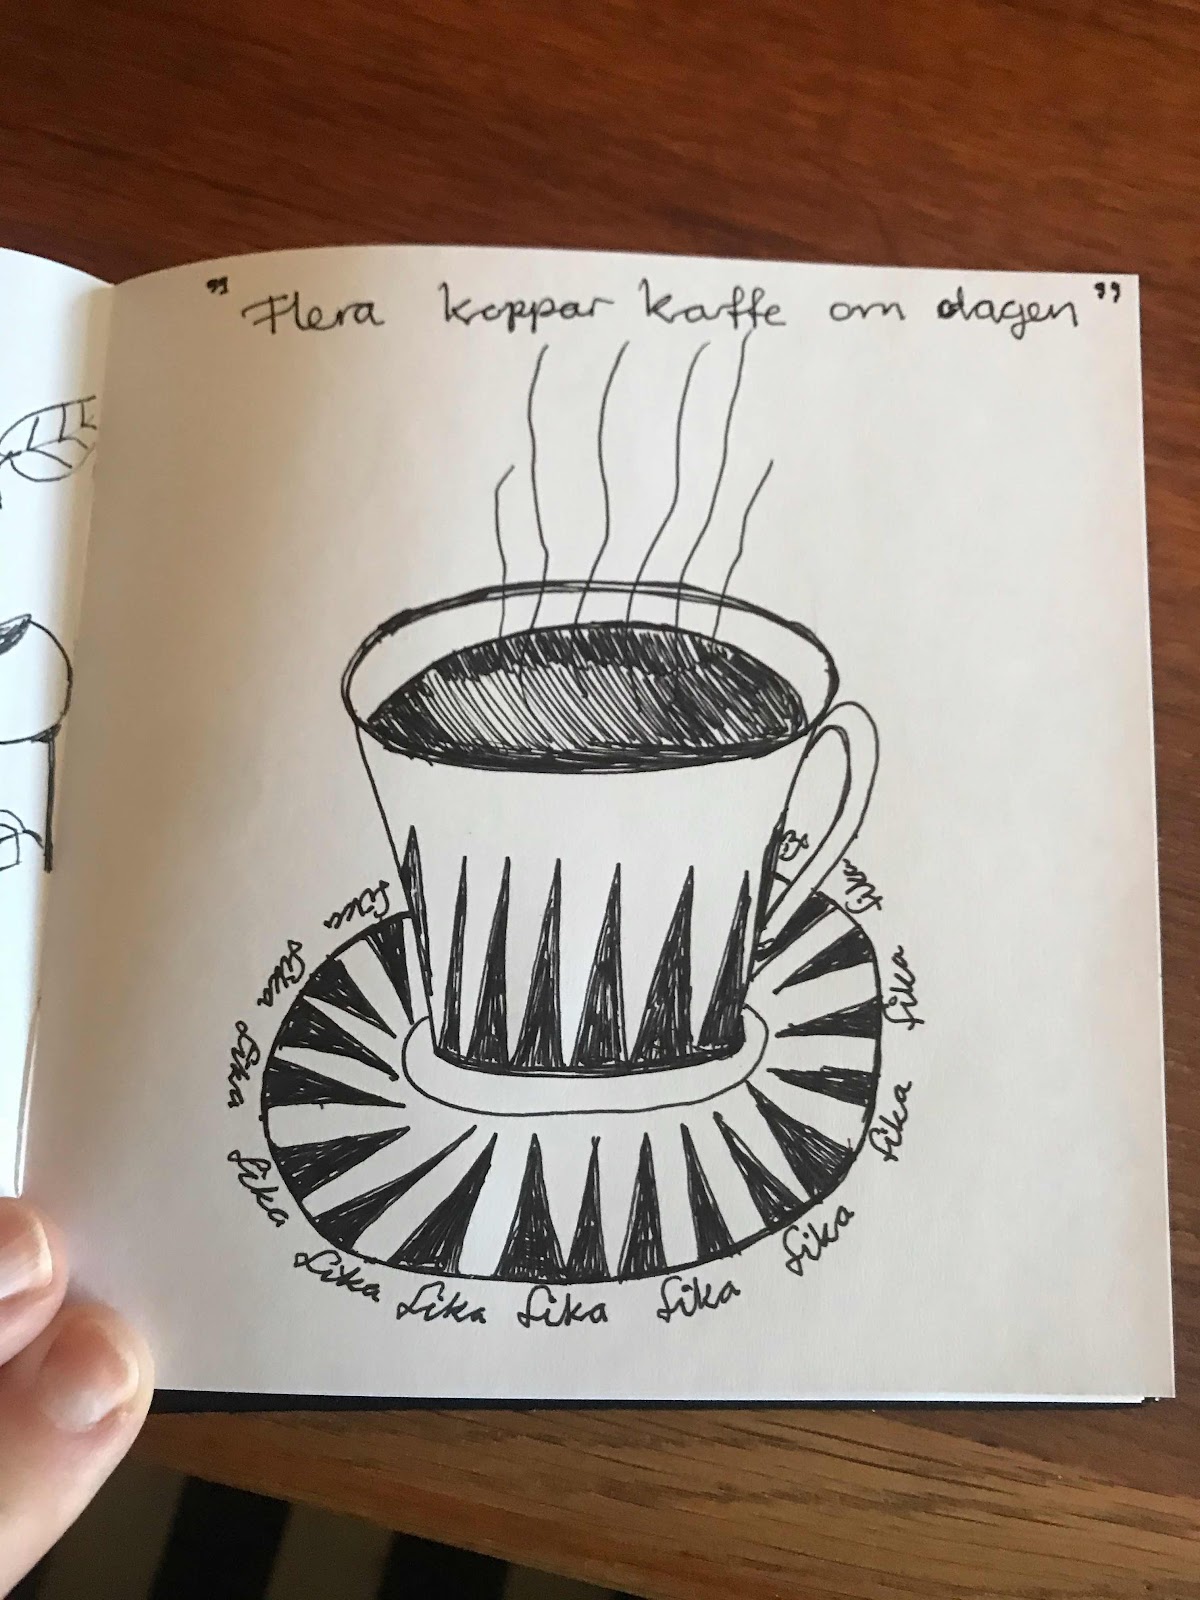 "Flera koppar kaffe om dagen"
fika
fika
fika
fika
fika
fika
fika
fika
fika
fika
fika
fika